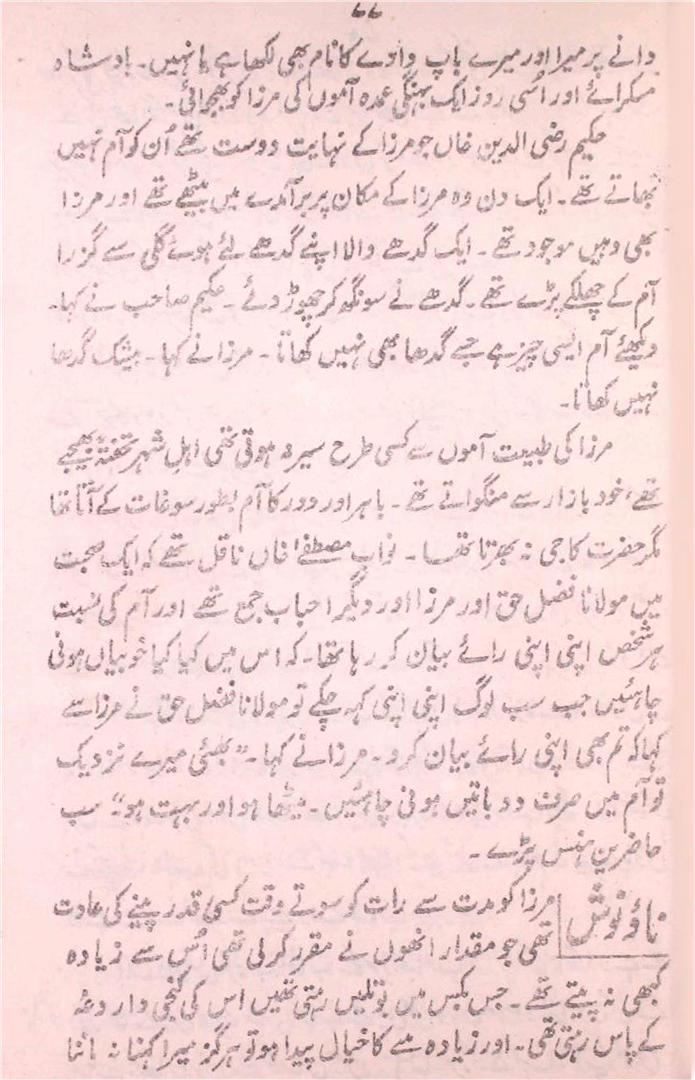 ۶۶
دانے پر میرا اور میرے باپ دادے کا نام بھی لکھا ہے یا نہیں۔ بادشاہ
مسکرائے اور اُسی روز ایک بہنگی عمدہ آموں کی مرزا کو بھجوائی۔
حکیم رضی الدین خاں جو مرزا کے نہایت دوست تھے اُن کو آم نہیں
بھاتے تھے۔ ایک دن وہ مرزا کے مکان پر برآمدے میں بیٹھے تھے اور مرزا
بھی وہیں موجود تھے۔ ایک گدھے والا اپنے گدھے لئے ہوئے گلی سے گزرا
آم کے چھلکے پڑے تھے۔ گدھے نے سونگھ کر چھوڑ دئے۔ حکیم صاحب نے کہا۔
دیکھئے آم ایسی چیز ہے جسے گدھا بھی نہیں کھاتا۔ مرزا نے کہا۔ بیشک گدھا
نہیں کھاتا۔
مرزا کی طبیعت آموں سے کسی طرح سیر نہ ہوتی تھی اہلِ شہر تحفۃً بھیجتے
تھے، خود بازار سے منگواتے تھے۔ باہر اور دور کا آم بطور سوغات کے آتا تھا
مگر حضرت کا جی نہ بھرتا تھا۔ نواب مصطفےٰ خاں ناقل تھے کہ ایک صحبت
میں مولانا فضل حق اور مرزا اور دیگر احباب جمع تھے اور آم کی نسبت
ہر شخص اپنی اپنی رائے بیان کر رہا تھا۔ کہ اس میں کیا کیا خوبیاں ہونی
چاہئیں جب سب لوگ اپنی اپنی کہہ چکے تو مولانا فضل حق نے مرزا سے
کہا کہ تم بھی اپنی رائے بیان کرو۔ مرزا نے کہا۔ "بھئی میرے نزدیک
تو آم میں صرف دو باتیں ہونی چاہئیں۔ میٹھا ہو اور بہت ہو" سب
حاضرین ہنس پڑے۔
ناؤ نوش
مرزا کو مدت سے رات کو سوتے وقت کسی قدر پینے کی عادت
تھی جو مقدار انھوں نے مقرر کر لی تھی اُس سے زیادہ
کبھی نہ پیتے تھے۔ جس بکس میں بوتلیں رہتی تھیں اس کی کنجی داروغہ
کے پاس رہتی تھی۔ اور زیادہ مے کا خیال پیدا ہو تو ہرگز میرا کہنا نہ ماننا